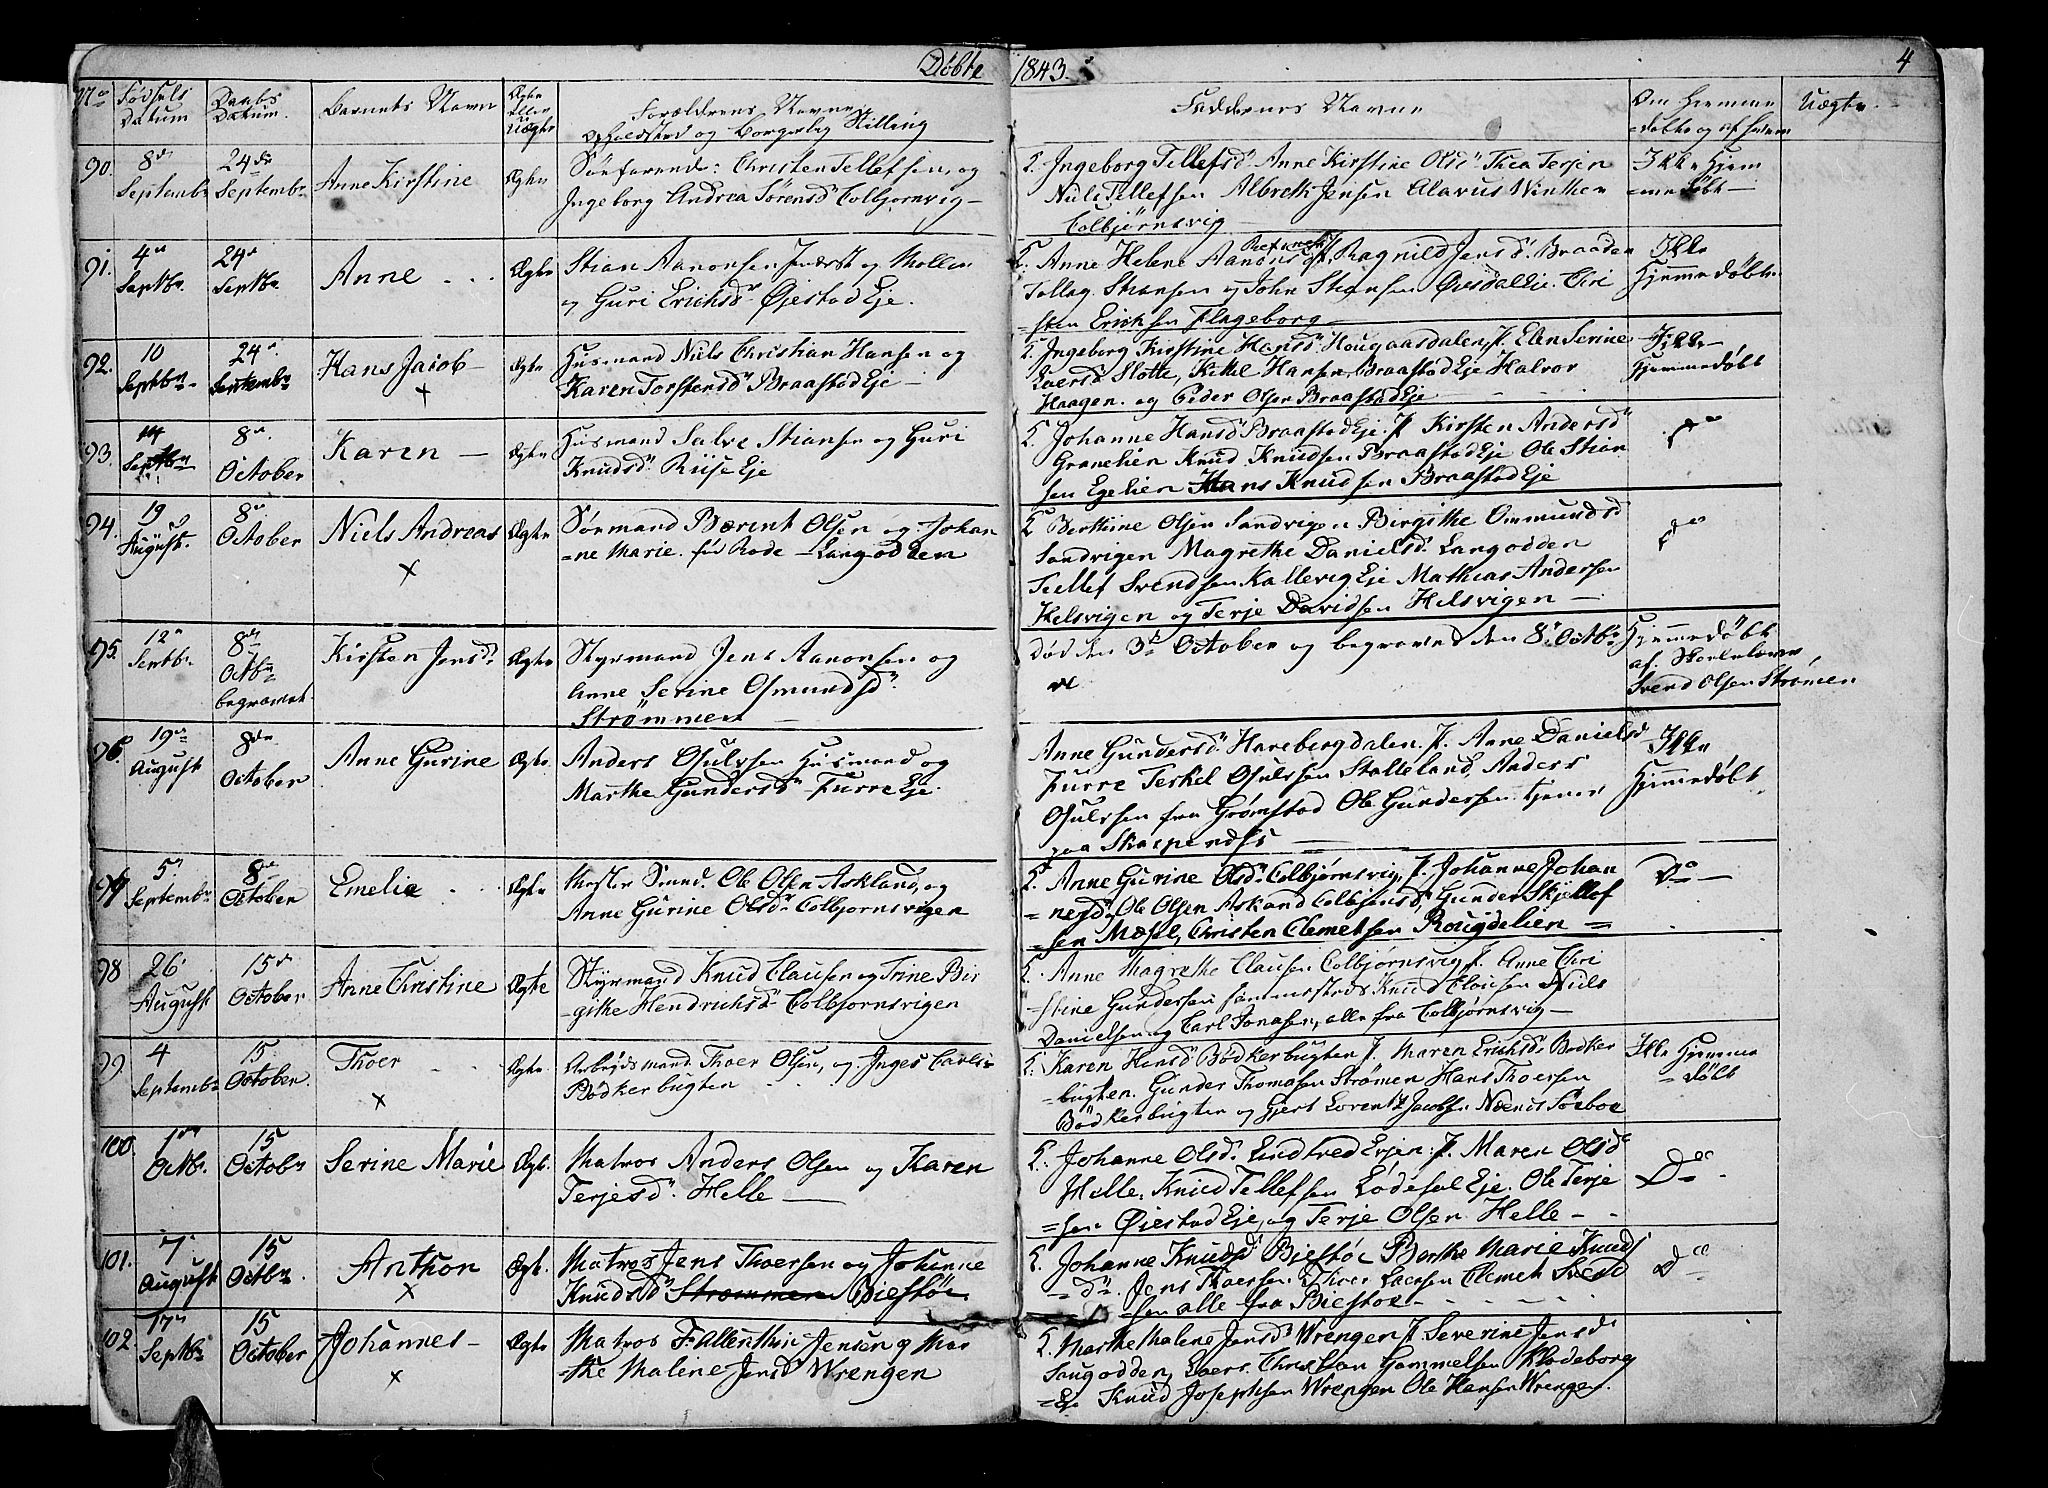 Døbte 1843. 4
No Fødsels Datum Daabs Datum. Barnets Navn Ægte Eller Uægte Forældrenes Navne Opholdssted og Borgerlig Stilling Faddernes Navne Om Hjemme døbte og af hvem Uægte
90. 8de Septembr 24de Septembr Anne Kirstine Ægte Söefarende: Christen Tellefsen, og
Ingeborg Andrea Sørensd Colbjornsvig
Ingeborg Tellefsd Anne Kirstine Olsd Thea Terjen
Nils Tellefsen Albreth Jensen Olavus Winther
Colbjörnsvig
Ikke Hjem
=me døbt
91. 4de Septbr 24de Septbr Anne Ægte Stian Aanonsen og
og Guri Erichsd Øjestad Eje.
Anne Helene Aanonsd Ragnild Jensd Braaden
Tellag Stiansen og John Stiansen Øvesdal Eje. Chri
=sten Ericksen Flageborg
Ikke
Hjemmedøbt
92. 10 Septbr 24de Septembr Hans Jacob Ægte Husmand Niels Christian Hansen og
Karen Torstensd Braastad Eje
Ingeborg Kirstine Hansd Hougaasdalen, J. Elen Serine
Evensd Slotte, Kittel Hansen Braastød Eje Halvor
Haagen. og Peder Olsen Braastad Eje
Ikke
Hjemmedøbt
93. 14 Septbr 8de October Karen Ægte Husmand Salve Stiansen og Guri
Knudsd Riise Eje
Johanne Hansd Braastad Eje. J. Kirsten Andersd
Granelien Knud Knudsen Braastad Eje Ole Stian
sen Egelien Hans Knudsen Braastad Eje
Do
94. 19 August. 8de October Niels Andreas Ægte Sömand Bærent Olsen og Johan
=ne Marie. fød Rode Langodden
Berthine Olsen Sandvigen Birgithe Ommundsd
Sandvigen Magrethe Danielsd Langodden
Tellef Svendsen Kallevig Eje Mathias Andersen
Helsvigen og Terje Davidsen Helsvigen
Do
95. 12te Septbr 8de Octbr begravet. Kirsten Jensd Ægte Styrmand Jens Aanonsen og
Anne Serine Osmundsd
Strömmen
død den 3de October og begravet den 8de Octbr
Hjemmedøbt
af. Skolelærer
Svend Olsen Strømen
96. 19de August 8de October Anne Gurine Ægte Anders Osulvsen Husmand og
Marthe Gundersd Furre Eje.
Anne Gundersd Harebergdalen. J. Anne Danielsd
Furre Terkel Osulvsen Stalleland, Anders
Osulvsen fra Grømstad Ole Gundersen tjener
paa Skarpenæs
Ikke
Hjemmedøbt
97 5te Septembr 8de October Emelie Ægte Ole Olsen Askland, og
Anne Gurine Olsd Colbjornsvigen
Anne Gurine Olsd Colbjørnsvig, J. Johanne Johan
=nesd Ole Olsen Askand Colbjønsd, Gunder Skjellef
sen Mæsel, Christen Clemetsen Rougdelien
Do
98 26 August 15de October Anne Christine Ægte Styrmand Knud Clausen og Trine Bir
=githe Hendrichsd Colbjornsvigen
Anne Magrethe Clausen Colbjørnsvig J. Anne Chri
stine Gundersen sammesteds Knud Clausen Niels
Danielsen og Carl Jonasen, alle fra Colbjørnsvig
99. 4 Septembr 15 October. Thoer Ægte Arbejdsmand Thoer Olsen, og Inges Carls
Bødkerbugten
Karen Hansd Bødkerbugten J. Maren Erichsd Bødker
bugten. Gunder Thomasen Strømen Hans Thoersen
Bödkerbugten og Gjert Lorentz Jacobsen Næenes Söeboe
Ikke Hjemme
=døbt
100. 1ste Octbr. 15 Octobr Serine Marie Ægte. Matros Anders Olsen og Karen
Terjesd. Helle
Johanne Olsd. J. Maren Olsd
Helle. Knud Tellefsen Lødesøl Eje. Ole Terje
=sen Øiestad Eje, og Terje Olsen Helle
Do
101. 7de August 15 Octbr. Anthon Ægt. Matros Jens Thoersen og Johanne
Knudsd Strømmen Biestöe
Johanne Knudsd Biestöe Berthe Marie Knuds
d. Jens Thoersen Thoer Larsen Clemet Svend
sen alle fra Biestoe
Do
102. 17de Septbr 15 October Johannes Ægte Matros Fallenthin Jensen og Mar
=the Maline Jensd Wrengen
Marthe Malene Jensd Wrengen J. Severine Jensd
Sangodden, Laers Christian Gammelsen Klodeborg
Eje Knud Josephsen Wrengen Ole Hansen Wrengen.